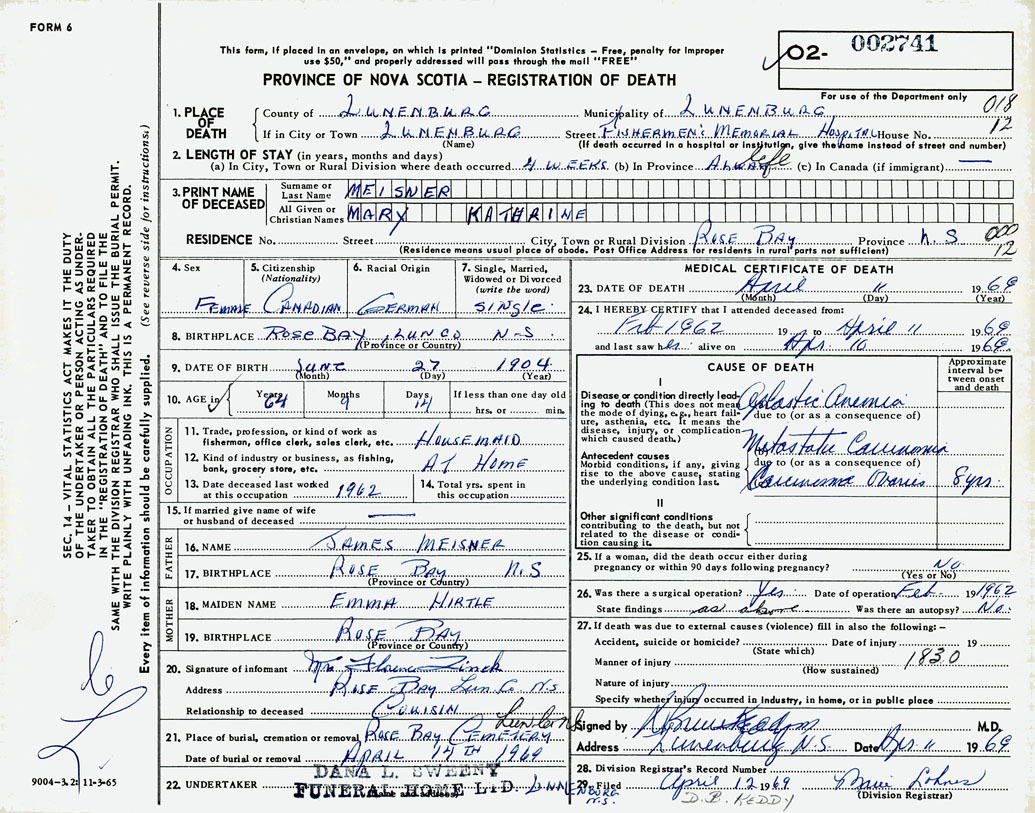 FORM 6
This form, if placed in an envelope, on which is printed "Dominion Statistics – Free, penalty for improper
use $50," and properly addressed will pass through the mail "FREE"
PROVINCE OF NOVA SCOTIA – REGISTRATION OF DEATH
02- 002741
For use of the Department only
018
12
SEC. 14 – VITAL STATISTICS ACT MAKES IT THE DUTY
OF THE UNDERTAKER OR PERSON ACTING AS UNDER-
TAKER TO OBTAIN ALL THE PARTICULARS REQUIRED
IN THE "REGISTRATION OF DEATH" AND TO FILE THE
SAME WITH THE DIVISION REGISTRAR WHO SHALL ISSUE THE BURIAL PERMIT.
WRITE PLAINLY WITH UNFADING INK. THIS IS A PERMANENT RECORD.
Every item of information should be carefully supplied. (See reverse side for instructions.)
1. PLACE OF DEATH
County of LUNENBURG Municipality of LUNENBURG
If in City or Town LUNENBURG Street FISHERMEN'S MEMORIAL HOSPITAL House No.
(Name) (If death occurred in a hospital or institution, give the name instead of street and number)
2. LENGTH OF STAY (in years, months and days)
(a) In City, Town or Rural Division where death occurred 4 WEEKS (b) In Province ALWAYS life (c) In Canada (if immigrant) —
3. PRINT NAME OF DECEASED
Surname or Last Name MEISNER
All Given or Christian Names MARY KATHRINE
RESIDENCE No. Street City, Town or Rural Division ROSE BAY Province N.S
000
12
(Residence means usual place of abode. Post Office Address for residents in rural parts not sufficient)
4. Sex FEMALE
5. Citizenship (Nationality) CANADIAN
6. Racial Origin GERMAN
7. Single, Married, Widowed or Divorced (write the word) SINGLE
8. BIRTHPLACE ROSE BAY, LUN CO N-S-
(Province or Country)
9. DATE OF BIRTH JUNE 27 1904
(Month) (Day) (Year)
10. AGE in Years 64 Months 9 Days 14 If less than one day old hrs. or min.
OCCUPATION
11. Trade, profession, or kind of work as fisherman, office clerk, sales clerk, etc. HOUSEMAID
12. Kind of industry or business, as fishing, bank, grocery store, etc. AT HOME
13. Date deceased last worked at this occupation 1962
14. Total yrs. spent in this occupation
15. If married give name of wife or husband of deceased —
FATHER
16. NAME JAMES MEISNER
17. BIRTHPLACE ROSE BAY N.S
(Province or Country)
MOTHER
18. MAIDEN NAME EMMA HIRTLE
19. BIRTHPLACE ROSE BAY
(Province or Country)
20. Signature of informant Mrs Florence Zinck
Address ROSE BAY Lun Co N.S
Relationship to deceased COUISIN
21. Place of burial, cremation or removal ROSE BAY CEMETERY
Date of burial or removal APRIL 14TH 1969
22. UNDERTAKER DANA L. SWEENY
FUNERAL HOME LTD. LUNNENBURG N.S.
(Name and address)
9004-3.2: 11-3-65
MEDICAL CERTIFICATE OF DEATH
23. DATE OF DEATH April 11 1969
(Month) (Day) (Year)
24. I HEREBY CERTIFY that I attended deceased from:
Feb 1962 19 to April 11 1969
and last saw her alive on Apr. 10 1969
CAUSE OF DEATH
Approximate interval between onset and death
I
Disease or condition directly leading to death (This does not mean the mode of dying, e.g., heart failure, asthenia, etc. It means the disease, injury, or complication which caused death.)
(a) Aplastic Anemia
due to (or as a consequence of)
Antecedent causes
Morbid conditions, if any, giving rise to the above cause, stating the underlying condition last.
(b) Metastatic Carcinoma
due to (or as a consequence of)
Carcinoma Ovaries 8 yrs.
II
Other significant conditions contributing to the death, but not related to the disease or condition causing it.
25. If a woman, did the death occur either during pregnancy or within 90 days following pregnancy? No.
(Yes or No)
26. Was there a surgical operation? Yes. Date of operation Feb. 1962
State findings as above Was there an autopsy? No.
27. If death was due to external causes (violence) fill in also the following: –
Accident, suicide or homicide? Date of injury 19
(State which)
Manner of injury 1830
(How sustained)
Nature of injury
Specify whether injury occurred in industry, in home, or in public place
Signed by M.D.
Address Lunenburg N.S. Date Apr. 11 1969
28. Division Registrar's Record Number
29. Filed April 12 1969
(Division Registrar)
D.B. KEDDY